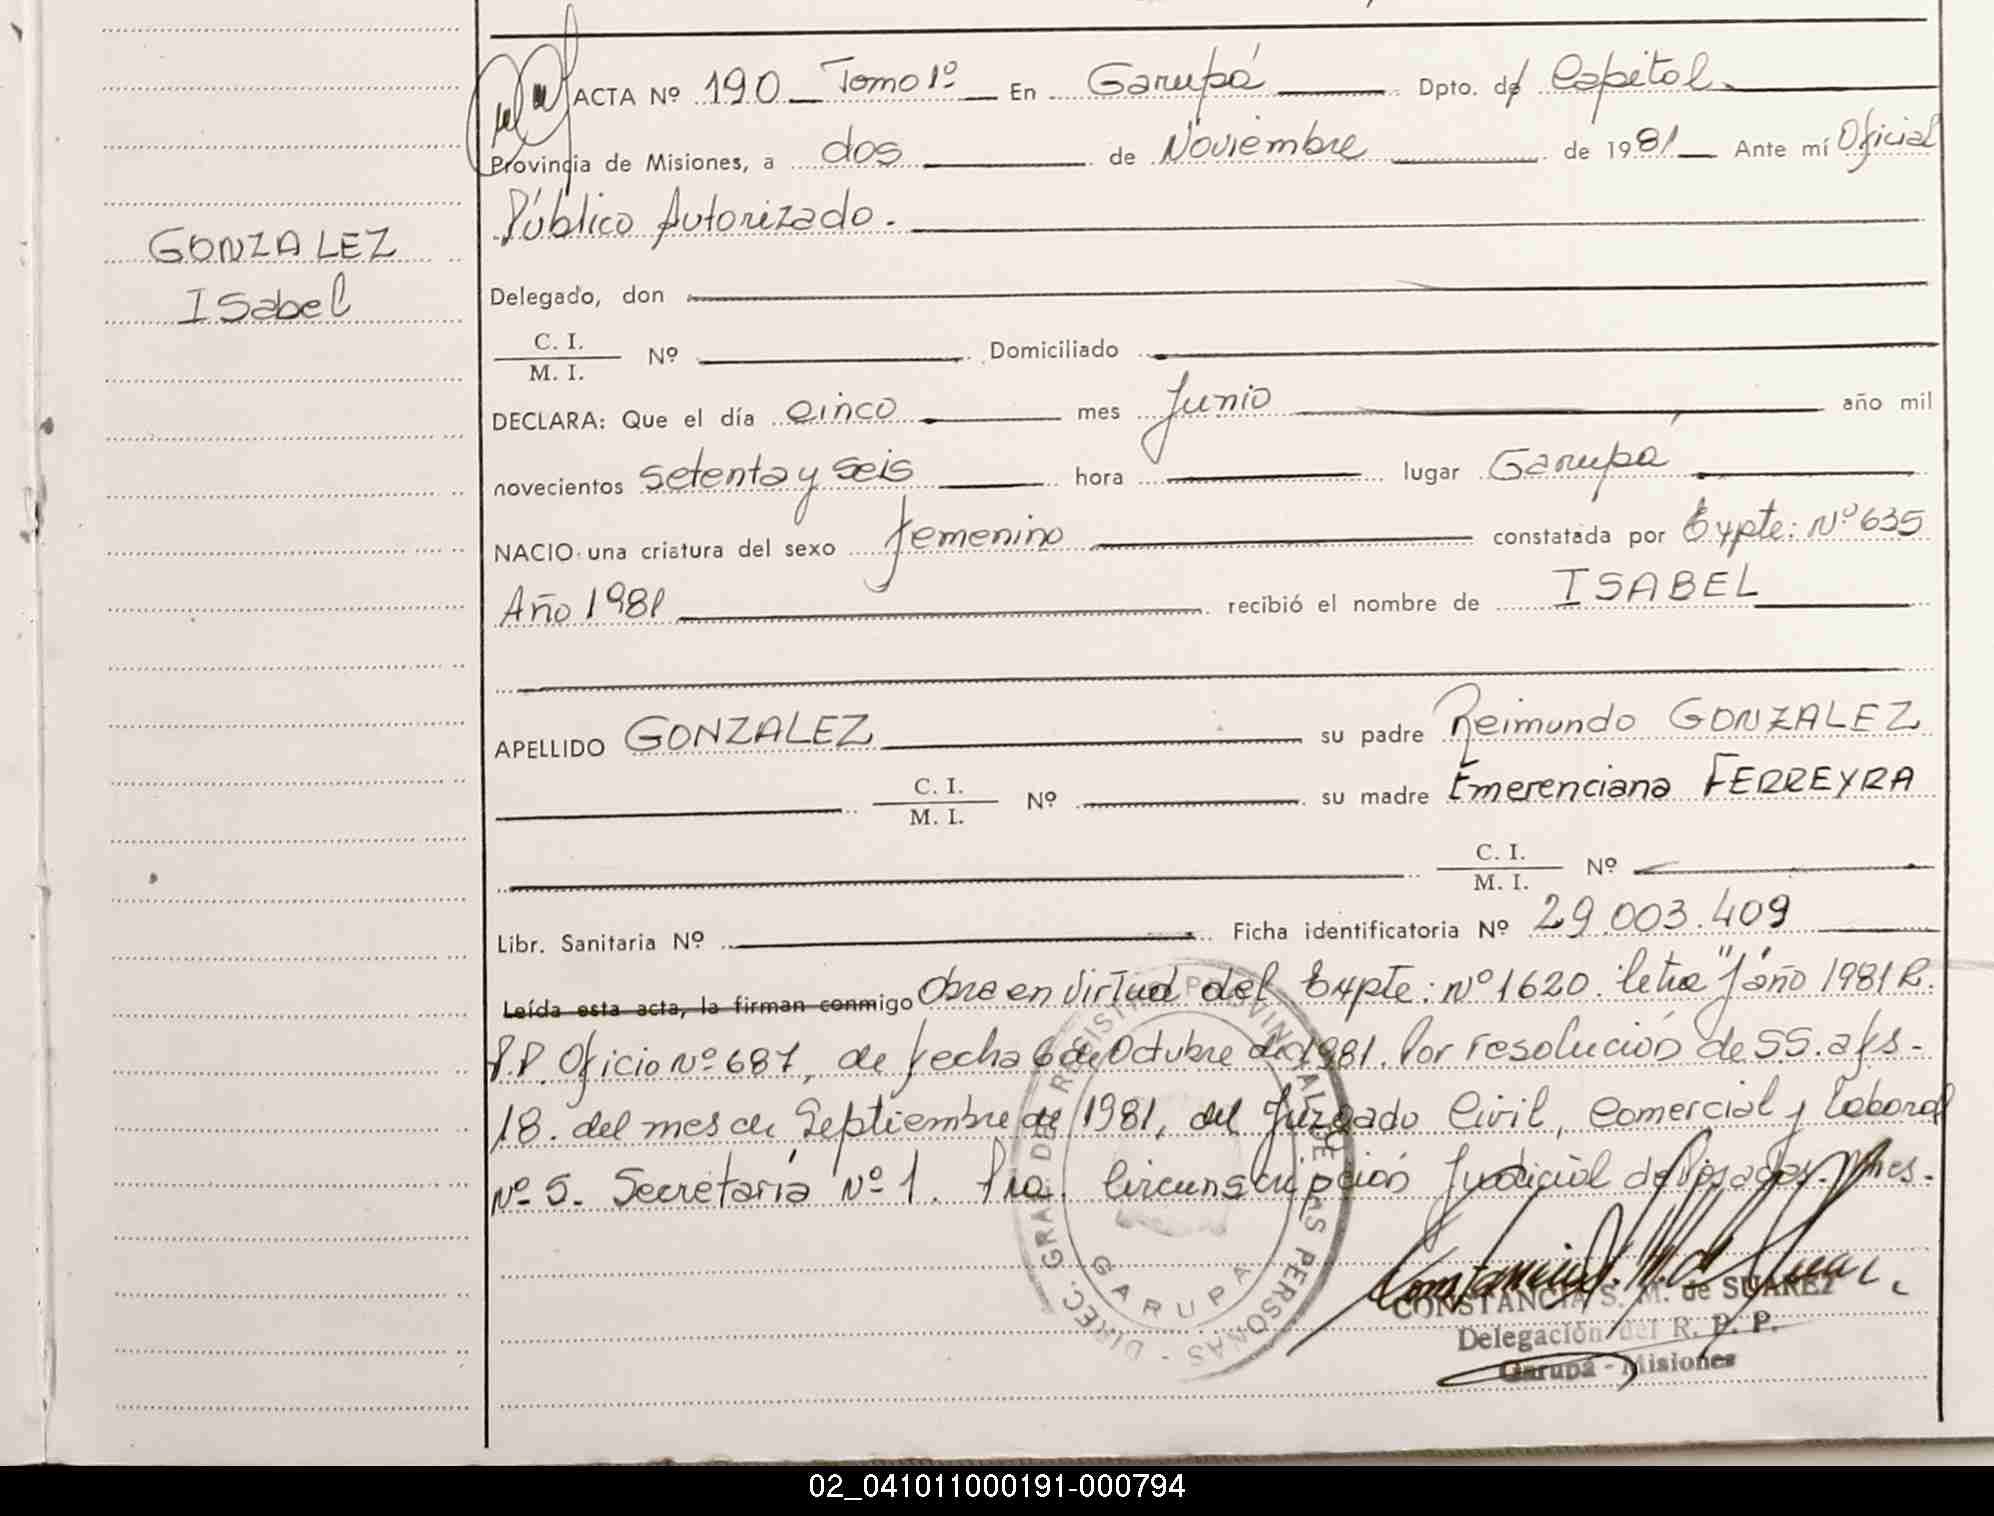 ACTA Nº 190 Tomo 1º En Garupá Dpto. de Capital
Provincia de Misiones, a dos de Noviembre de 1981 Ante mí Oficial
Público Autorizado.
GONZALEZ
ISabel
Delegado, don
C. I.
M. I.
Nº Domiciliado
DECLARA: Que el día cinco mes Junio año mil
novecientos setenta y seis hora lugar Garupá
NACIO una criatura del sexo femenino constatada por Expte: Nº 635
Año 1981 recibió el nombre de ISABEL
APELLIDO GONZALEZ su padre Reimundo GONZALEZ
C. I.
M. I.
Nº su madre Emerenciana FERREYRA
C. I.
M. I.
Nº
Libr. Sanitaria Nº Ficha identificatoria Nº 29.003.409
Leída esta acta, la firman conmigo Obra en virtud del Expte: Nº 1620. letra "J" año 1981 R.
P.P. Oficio Nº 687, de fecha 6 de Octubre de 1981. Por resolución de SS. a fs-
18. del mes de Septiembre de 1981, del Juzgado Civil, Comercial y Laboral
Nº 5. Secretaría Nº 1. Pra. Circunscripción Judicial de Posadas. Mnes.
DIREC. GRAL. DE REGISTRO PROVINCIAL DE LAS PERSONAS -
GARUPA
CONSTANCIA S. M. de SUAREZ
Delegación del R. P. P.
Garupá - Misiones
02_041011000191-000794